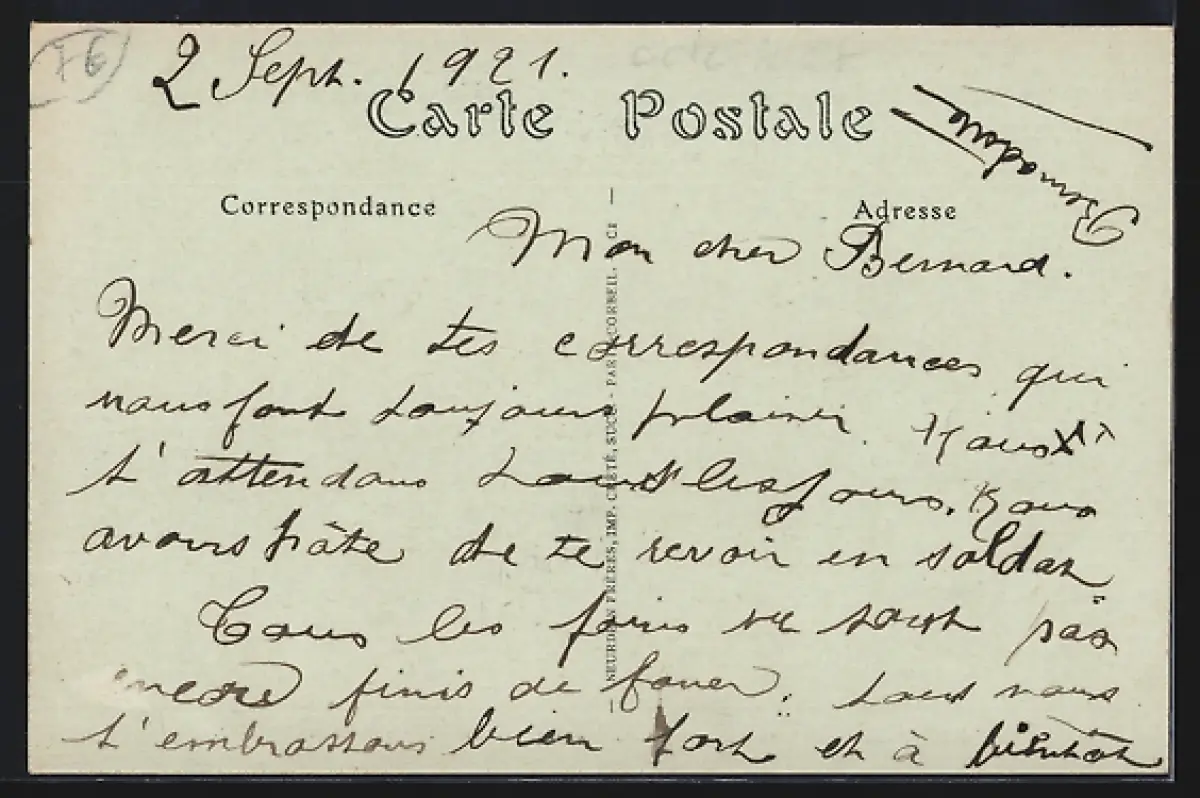 76
2 Sept. 1921.
Carte Postale
Correspondance
Adresse
Mon cher Bernard.
Merci de tes correspondances qui
nous font toujours plaisir. Nous
t'attendons tous les jours. Nous
avons hâte de te revoir en soldat
Tous les foins ne sont pas
encore finis de faner. tous nous
t'embrassons bien fort et à bientôt
NEURDEIN FRÈRES, IMP. CRÉTÉ, SUCC. - PARIS, CORBEIL. Cé